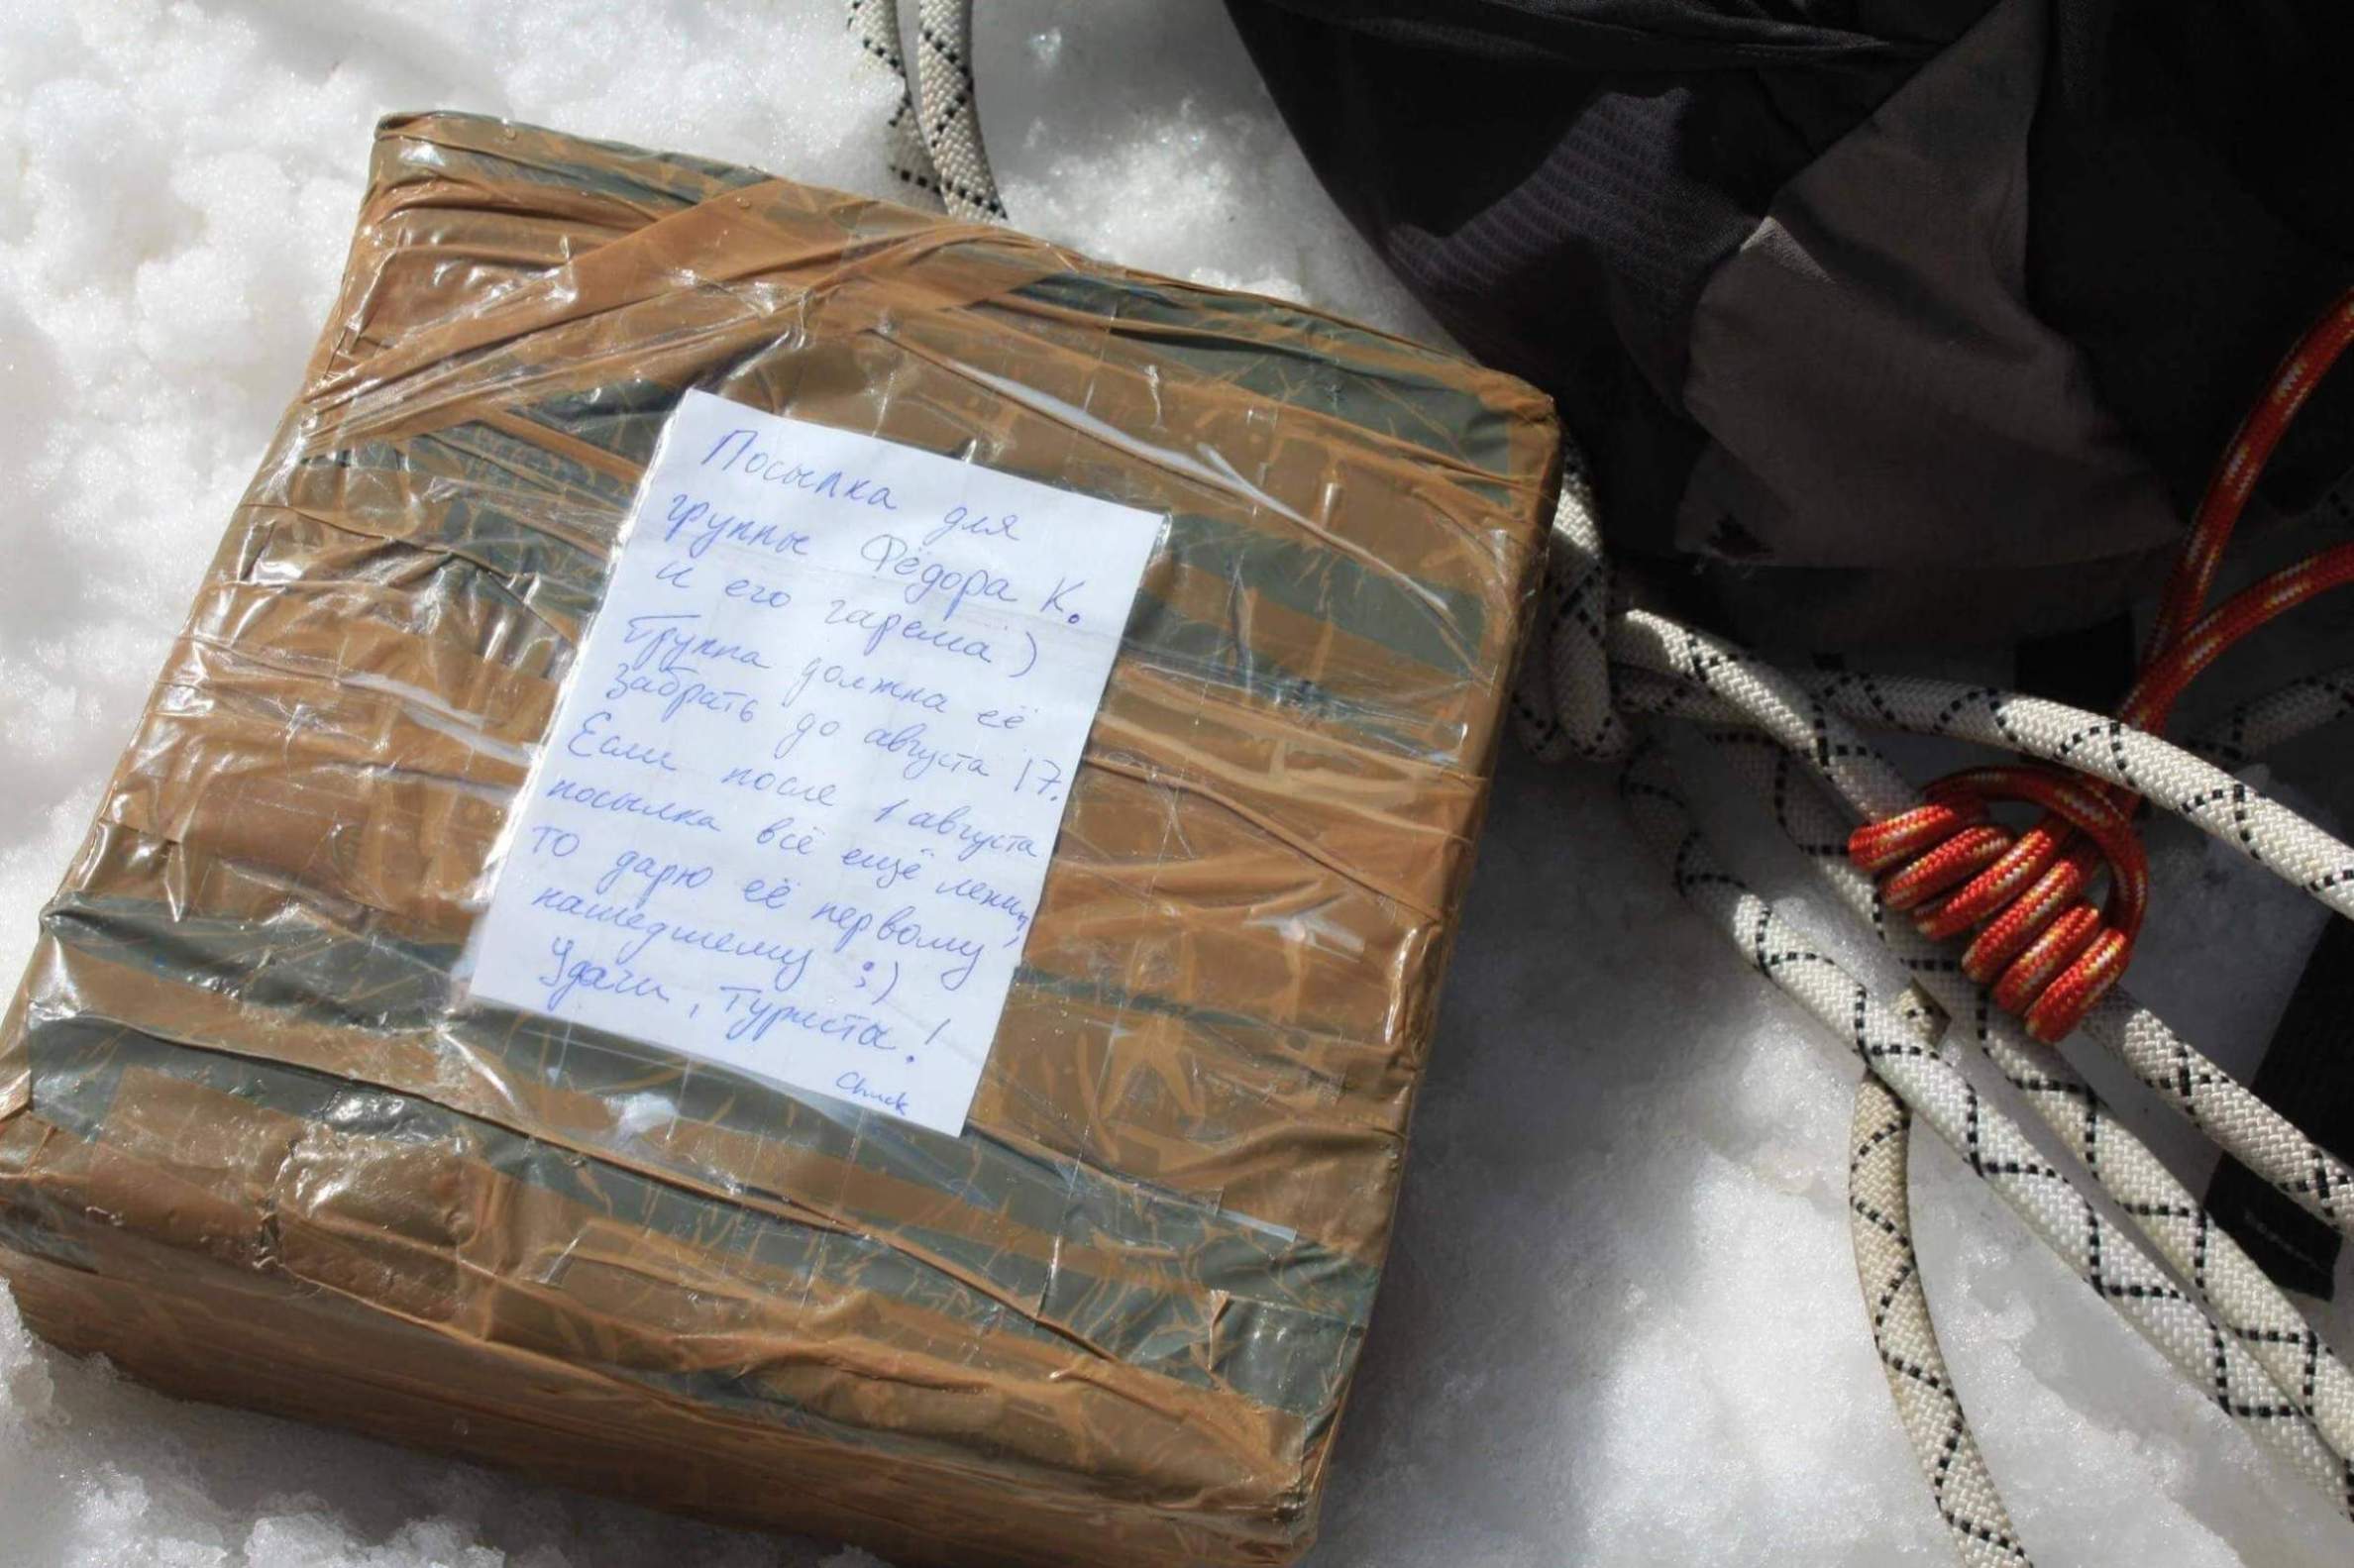 Посылка для
группы Фёдора К.
и его гарема)
Группа должна её
забрать до августа 17.
Если после 1 августа
посылка всё ещё лежит,
то дарю её первому
нашедшему ;)
Удачи, туристы!
Chuck